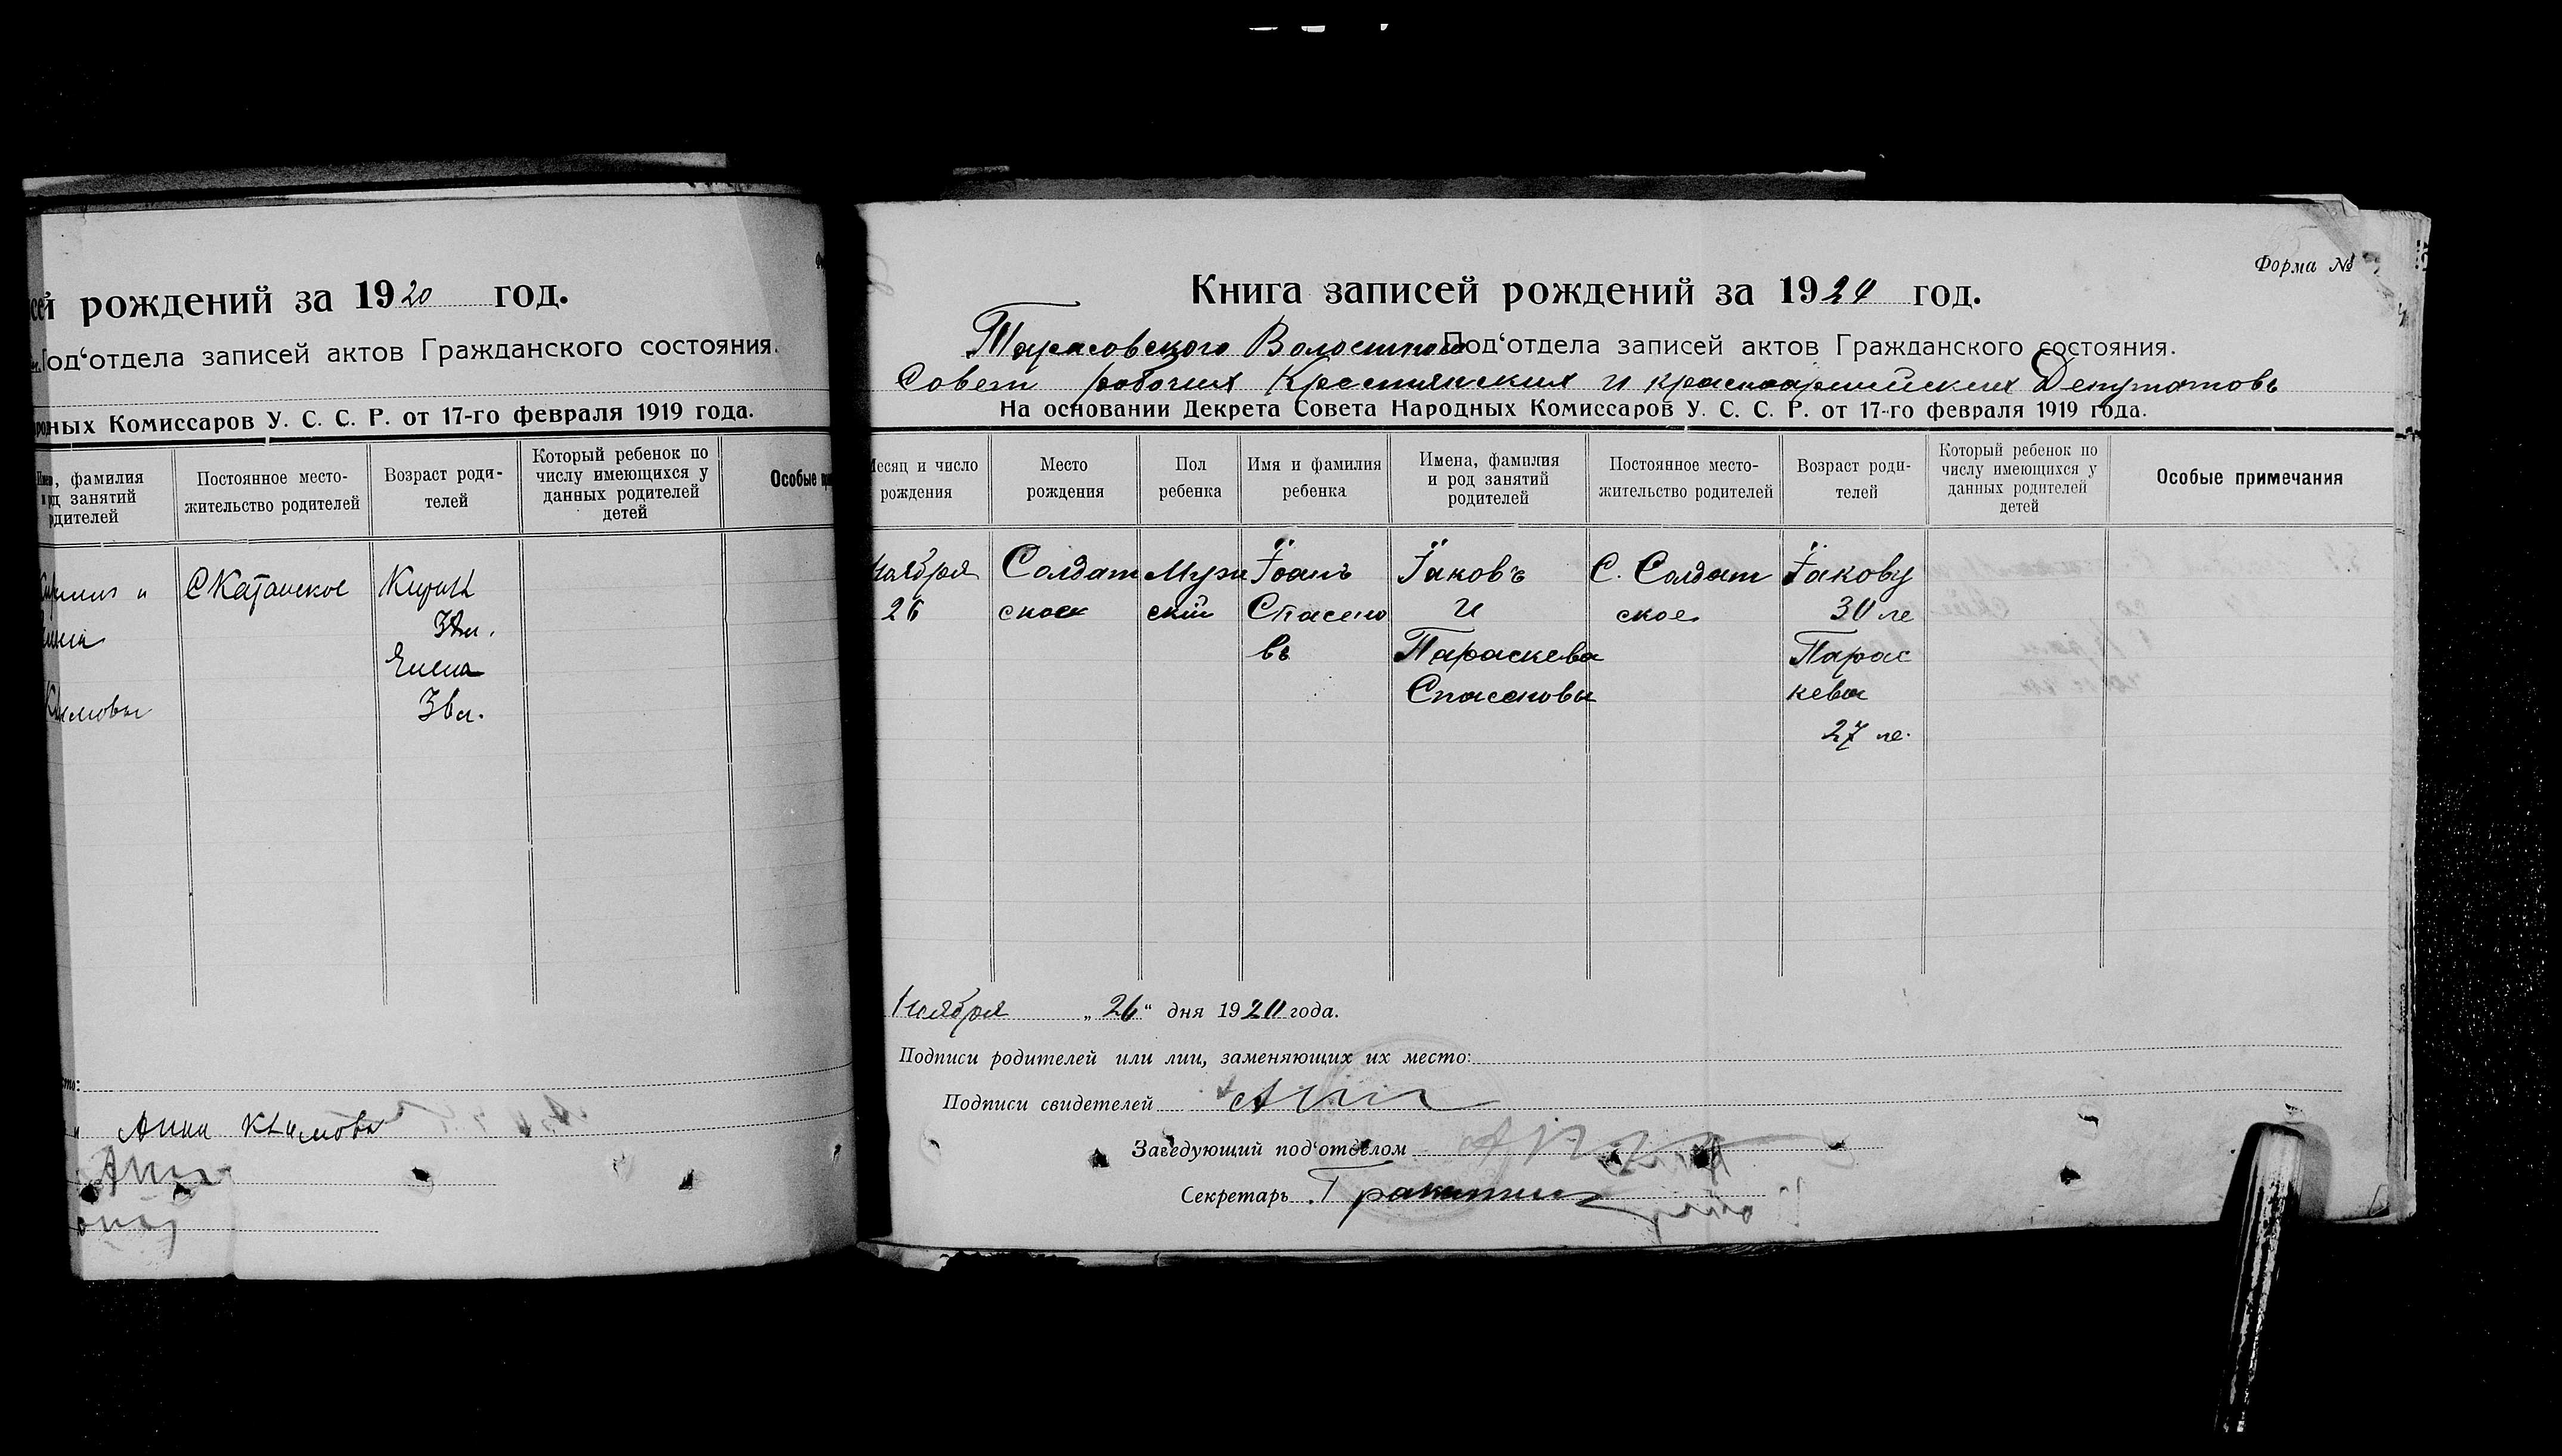 рождений за 1920 год.
Под‘отдела записей актов Гражданского состояния.
Комиссаров У. С. С. Р. от 17-го февраля 1919 года.
фамилия
занятий
Постоянное место-
жительство родителей
Возраст роди-
телей
Который ребенок по
числу имеющихся у
данных родителей
детей
Особые
и
С Катанское
Елена
Анна Климова
Форма №
Книга записей рождений за 1920 год.
Тарасовского Под‘отдела записей актов Гражданского состояния.
Совет рабочих Крестянских и красноармейских Депутатовъ
На основании Декрета Совета Народных Комиссаров У. С. С. Р. от 17-го февраля 1919 года.
Месяц и число
рождения
Место
рождения
Пол
ребенка
Имя и фамилия
ребенка
Имена, фамилия
и род занятий
родителей
Постоянное место-
жительство родителей
Возраст роди-
телей
Который ребенок по
числу имеющихся у
данных родителей
детей
Особые примечания
Ноября Солдат Муж Іоанъ Іаковъ С. Солдат Іакову
26 ское ский Спасено и ское 30 ле
въ Параскева Парас
Спасеновы кева
27 ле.
Ноября „ 26 “ дня 1920 года.
Подписи родителей или лиц, заменяющих их место:
Подписи свидетелей
Заведующий под‘отделом
Секретарь